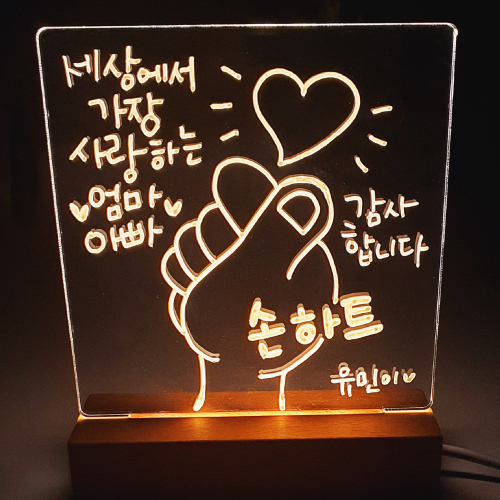 세상에서
가장
사랑하는
♥엄마♥
아빠
감사
합니다
손하트
유민이♥